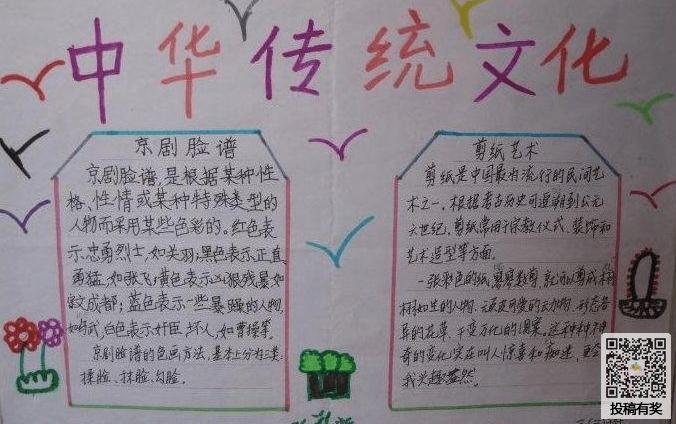 中华传统文化
京剧脸谱
京剧脸谱,是根据某种性
格、性情或某种特殊类型的
人物而采用某些色彩的。红色表
示忠勇烈士,如关羽;黑色表示正直
勇猛,如张飞;黄色表示凶狠残暴如
成都;蓝色表示一些暴躁的人物,
白色表示奸臣、坏人,如曹操等。
京剧脸谱的色画方法,基本上分为三类:
揉脸、抹脸、勾脸。
剪纸艺术
剪纸是中国最为流行的民间艺
术之一,根据考古历史可追朔到公元
六世纪,剪纸常用于宗教仪式、装饰和
艺术造型等方面。
一张彩色的纸,就可以剪成
的人物、活皮可爱的动物、形态各
异的花草、千变万化的图案。这种种神
奇的变化实在叫人惊喜和痴迷,更令
我兴趣盎然。
投稿有奖